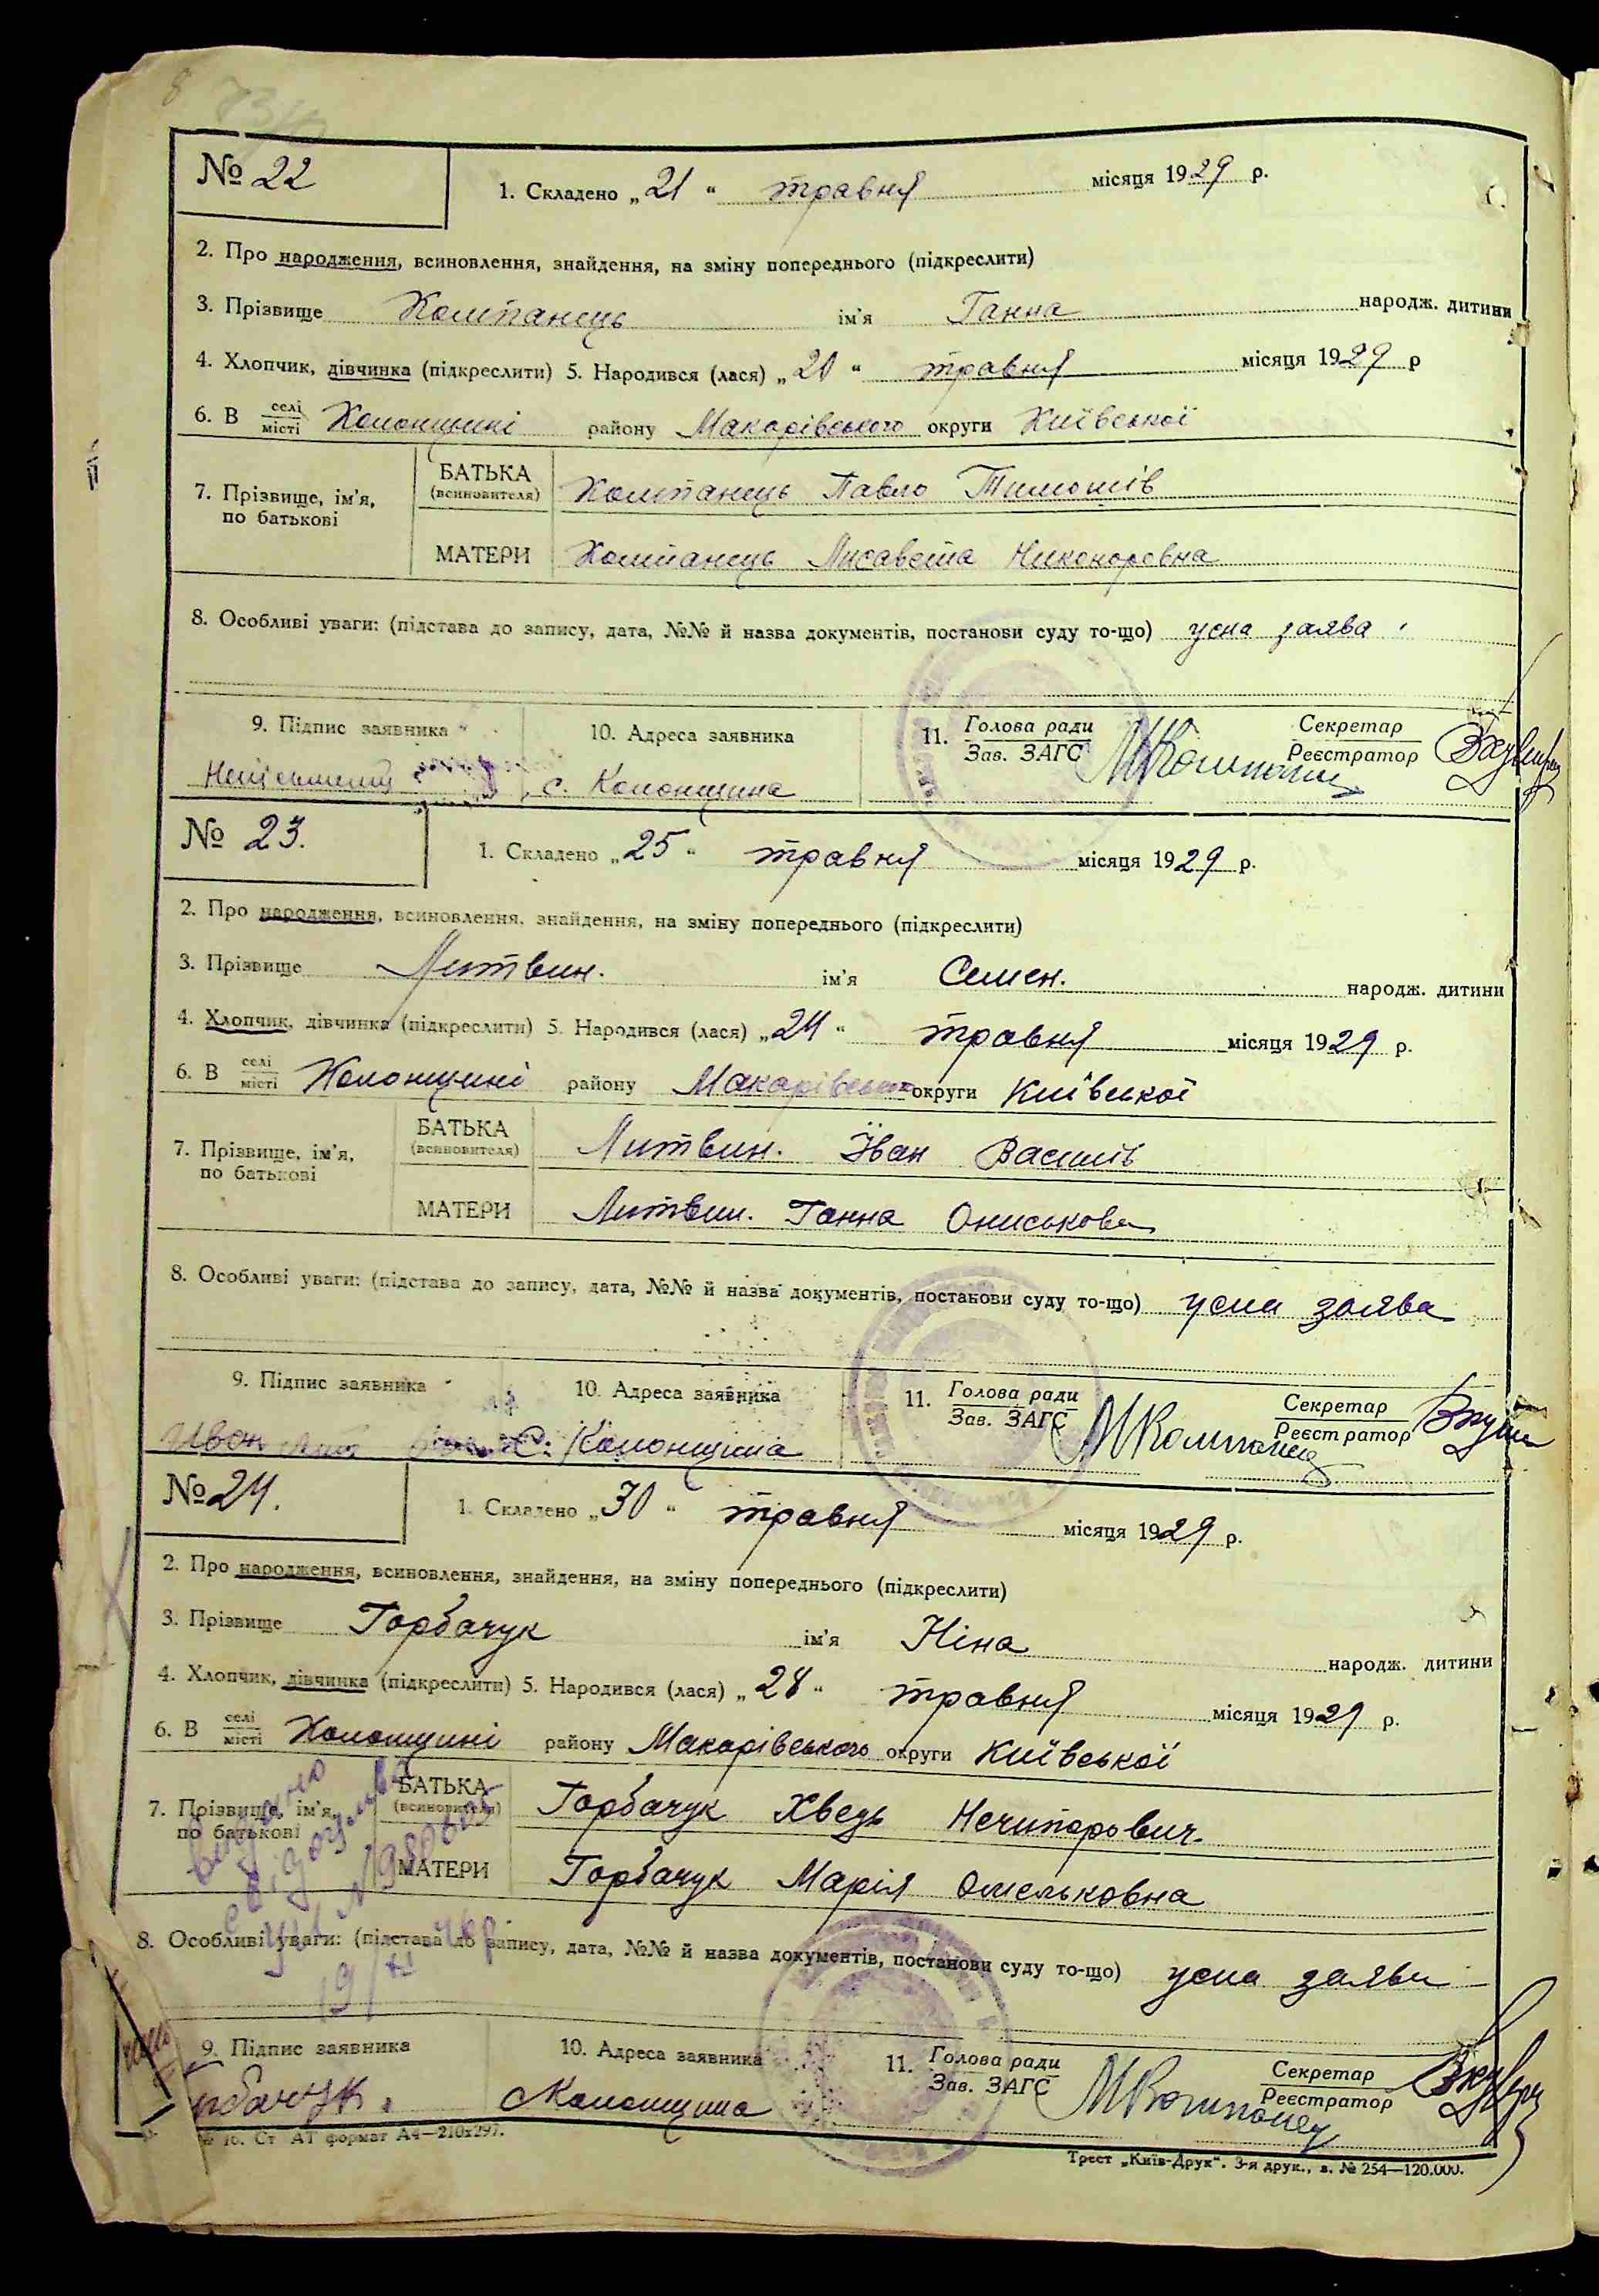 8
№ 22
1. Складено „21“ травня місяця 1929 р.
2. Про народження, всиновлення, знайдення, на зміну попереднього (підкреслити)
3. Прізвище Компанець ім'я Ганна народж. дитини
4. Хлопчик, дівчинка (підкреслити) 5. Народився (лася) „20“ травня місяця 1929 р
6. В селі місті Колонщині району Макарівського округи Київської
7. Прізвище, ім'я, по батькові
БАТЬКА (всиновителя) Компанець Павло Тимошів
МАТЕРИ Компанець Лисавета Никоноровна
8. Особливі уваги: (підстава до запису, дата, №№ й назва документів, постанови суду то-що) усна заява
9. Підпис заявника 10. Адреса заявника 11. Голова ради Зав. ЗАГС Секретар Реєстратор
Неписьменний с. Колонщина МКомпанец
№ 23.
1. Складено „25“ травня місяця 1929 р.
2. Про народження, всиновлення, знайдення, на зміну попереднього (підкреслити)
3. Прізвище Литвин. ім'я Семен. народж. дитини
4. Хлопчик, дівчинка (підкреслити) 5. Народився (лася) „24“ травня місяця 1929 р.
6. В селі місті Колонщині району Макарівського округи Київської
7. Прізвище, ім'я, по батькові
БАТЬКА (всиновителя) Литвин. Іван Василів
МАТЕРИ Литвин. Ганна Ониськова
8. Особливі уваги: (підстава до запису, дата, №№ й назва документів, постанови суду то-що) усна заява
9. Підпис заявника 10. Адреса заявника 11. Голова ради Зав. ЗАГС Секретар Реєстратор
Ивон С. Колонщина МКомпанец
№ 24.
1. Складено „30“ травня місяця 1929 р.
2. Про народження, всиновлення, знайдення, на зміну попереднього (підкреслити)
3. Прізвище Горбачук ім'я Ніна народж. дитини
4. Хлопчик, дівчинка (підкреслити) 5. Народився (лася) „28“ травня місяця 1929 р.
6. В селі місті Колонщині району Макарівського округи Київської
7. Прізвище, ім'я, по батькові
БАТЬКА (всиновителя) Горбачук Хведь Нечипорович.
МАТЕРИ Горбачук Марія Омельковна
8. Особливі уваги: (підстава до запису, дата, №№ й назва документів, постанови суду то-що) усна заява
9. Підпис заявника 10. Адреса заявника 11. Голова ради Зав. ЗАГС Секретар Реєстратор
рбачук. с Колонщина МКомпанец
№ 16. Ст АТ формат А4—210х297.
Трест „Київ-Друк“. 3-я друк., з. № 254—120.000.